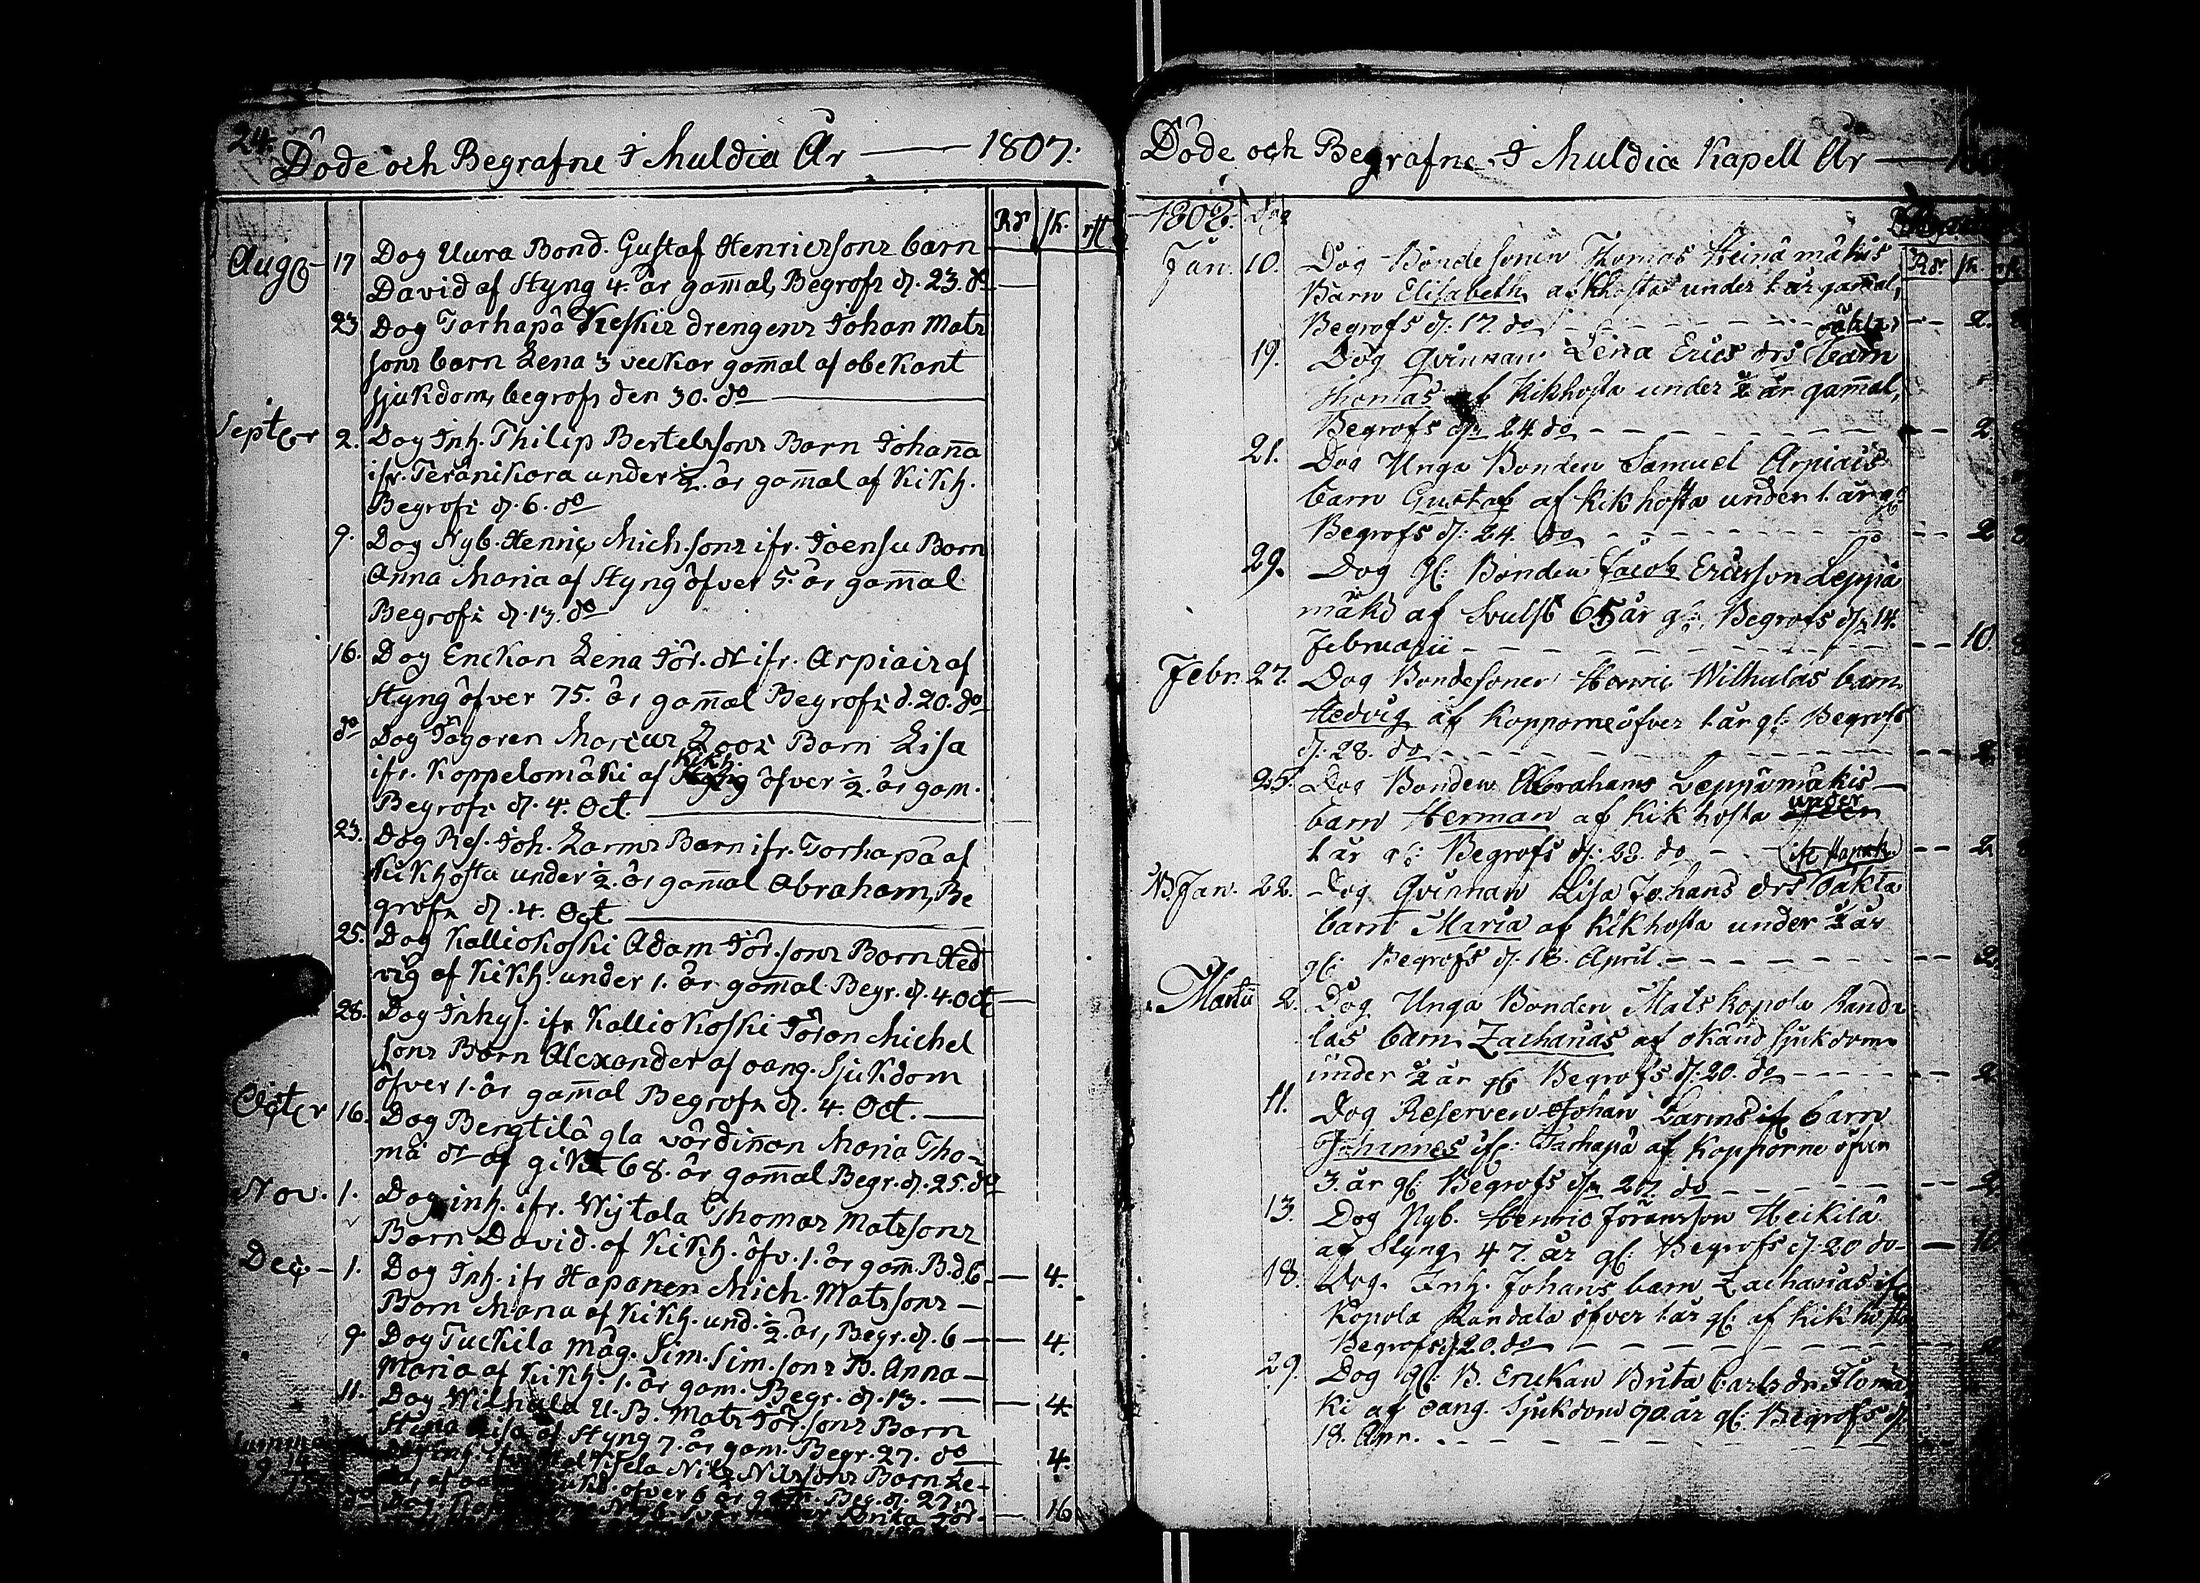 24.
Döde och Begrafne i Muldia År — 1807.
Rd sk. rst
Aug 17 Dog Uura Bond. Gustaf Henricsons barn
David af Styng 4. år gam̄al, Begrofs d. 23. do
23 Dog Tarhapä Keskis drengens Johan Mats
sons barn Lena 3 veckor gam̄al af obekant
sjukdom, begrofs den 30. do
Septbr 2. Dog Inh. Philip Bertelssons Barn Johan̄a
ifr. Teränikora under ½ år gam̄al af Kikh.
Begrofs d. 6. do
9. Dog Nyb. Henric Mich.sons ifr. Joensu Barn
Anna Maria af Styng öfver 5. år gam̄al
Begrofs d. 13. do
16. Dog Enckan Lena Jör. dr ifr. Arpiais af
Styng öfver 75. år gam̄al Begrofs d. 20. do
do Dog Jägaren Marcus Roos Barn Lisa
ifr. Koppelomäki af Kikh. öfver ½ år gam.
Begrofs d. 4. Oct.
23. Dog Res. Joh. Larms Barn ifr. Tarhapä af
Kikhosta under ½ år gam̄al Abraham, Be
grofs d. 4. Oct
25. Dog Kalliokoski Adam Jör. sons Barn Hed
vig af Kikh. under 1. år gam̄al Begr. d. 4. Oct
28. Dog Inhys. ifr Kalliokoski Jöran Michel
sons Barn Alexander af oang. Sjukdom
öfver 1. år gam̄al Begrofs d. 4. Oct.
Octbr 16. Dog Bengtilä gla värdin̄an Maria Tho-
mä dr af gikt 68. år gam̄al Begr. d. 25. do
Nov. 1. Dog inh. ifr. Wijtala Thomas Matssons
Barn David. af Kikh. öfv. 1. år gam̄. B. d 6
Dec 1. Dog Inh. ifr Hapanen Mich. Matssons — 4.
Barn Maria af Kikh. und. ½ år, Begr. d. 6
9. Dog Tuckila Måg. Sim. Sim. sons B. Anna — 4.
Maria af Kikh. 1. år gam. Begr. d. 13.
11. Dog Wilhula U. B. Mats Jör sons Barn 4
Stina Lisa af Styng 7. år gam. Begr. 27. do
Nils Nilssons Barn Le- 4.
öfver 6 år gam. Beg. d. 27.
Brita Jör- 16
Döde och Begrafne i Muldia Kapell År —
1808. Dag
Rdr. sk
Jan. 10. Dog Bondesonen Thomas Heinämäkis
Barn Elisabeth af Kikhosta under 1 år gam̄al,
Begrofs d: 17. do — 2.
19. Dog Qvinnan Lena Erics drs oäkta barn
Thomas af Kikhosta under ½ år gam̄al,
Begrofs d: 24. do — 2.
21. Dog Unga Bonden Samuel Arpiais
barn Gustaf af Kikhosta under 1. år gl
Begrofs d: 24. do — 2
29. Dog gl: Bonden Jacob Ericsson Leppä
mäki af Svulst 65 år gl: Begrofs d: 14.
Februarii — 10.
Febr. 27. Dog Bondesonen Henric Wilhulas barn
Hedvig af Kopporne öfver 1 år gl: Begrofs
d: 28. do — 2
25. Dog Bonden Abrahams Leppämäkis
barn Herman af Kikhosta under
1 år gl: Begrofs d: 28. do — 2
NB. Jan. 22. Dog Qvinnan Lisa Johans drs oäkta
barn Maria af Kikhosta under ½ år
gl: Begrofs d: 18. April — 2.
Martii 2. Dog Unga Bonden Mats Kopola Randa
las barn Zacharias af okänd sjukdom
under ½ år gl: Begrofs d: 20. do — 2
11. Dog Reserven Johan Larms barn
Johannes ifr: Tarhapä af Kopporne öfver
3. år gl: Begrofs d: 27. do — 2
13. Dog Nyb. Henric Jöransson Heikilä
af Styng 47. år gl: Begrofs d: 20 do — 10
18. Dog. Inh. Johans barn Zacharias ifr
Kopola Randala öfver 1 år gl: af Kikhosta
Begrofs d 20. do — 2
29. Dog gl: B. Enckan Brita Carls dr Flomä
ki af oang. Sjukdom 90 år gl: Begrofs d:
18. Apr.